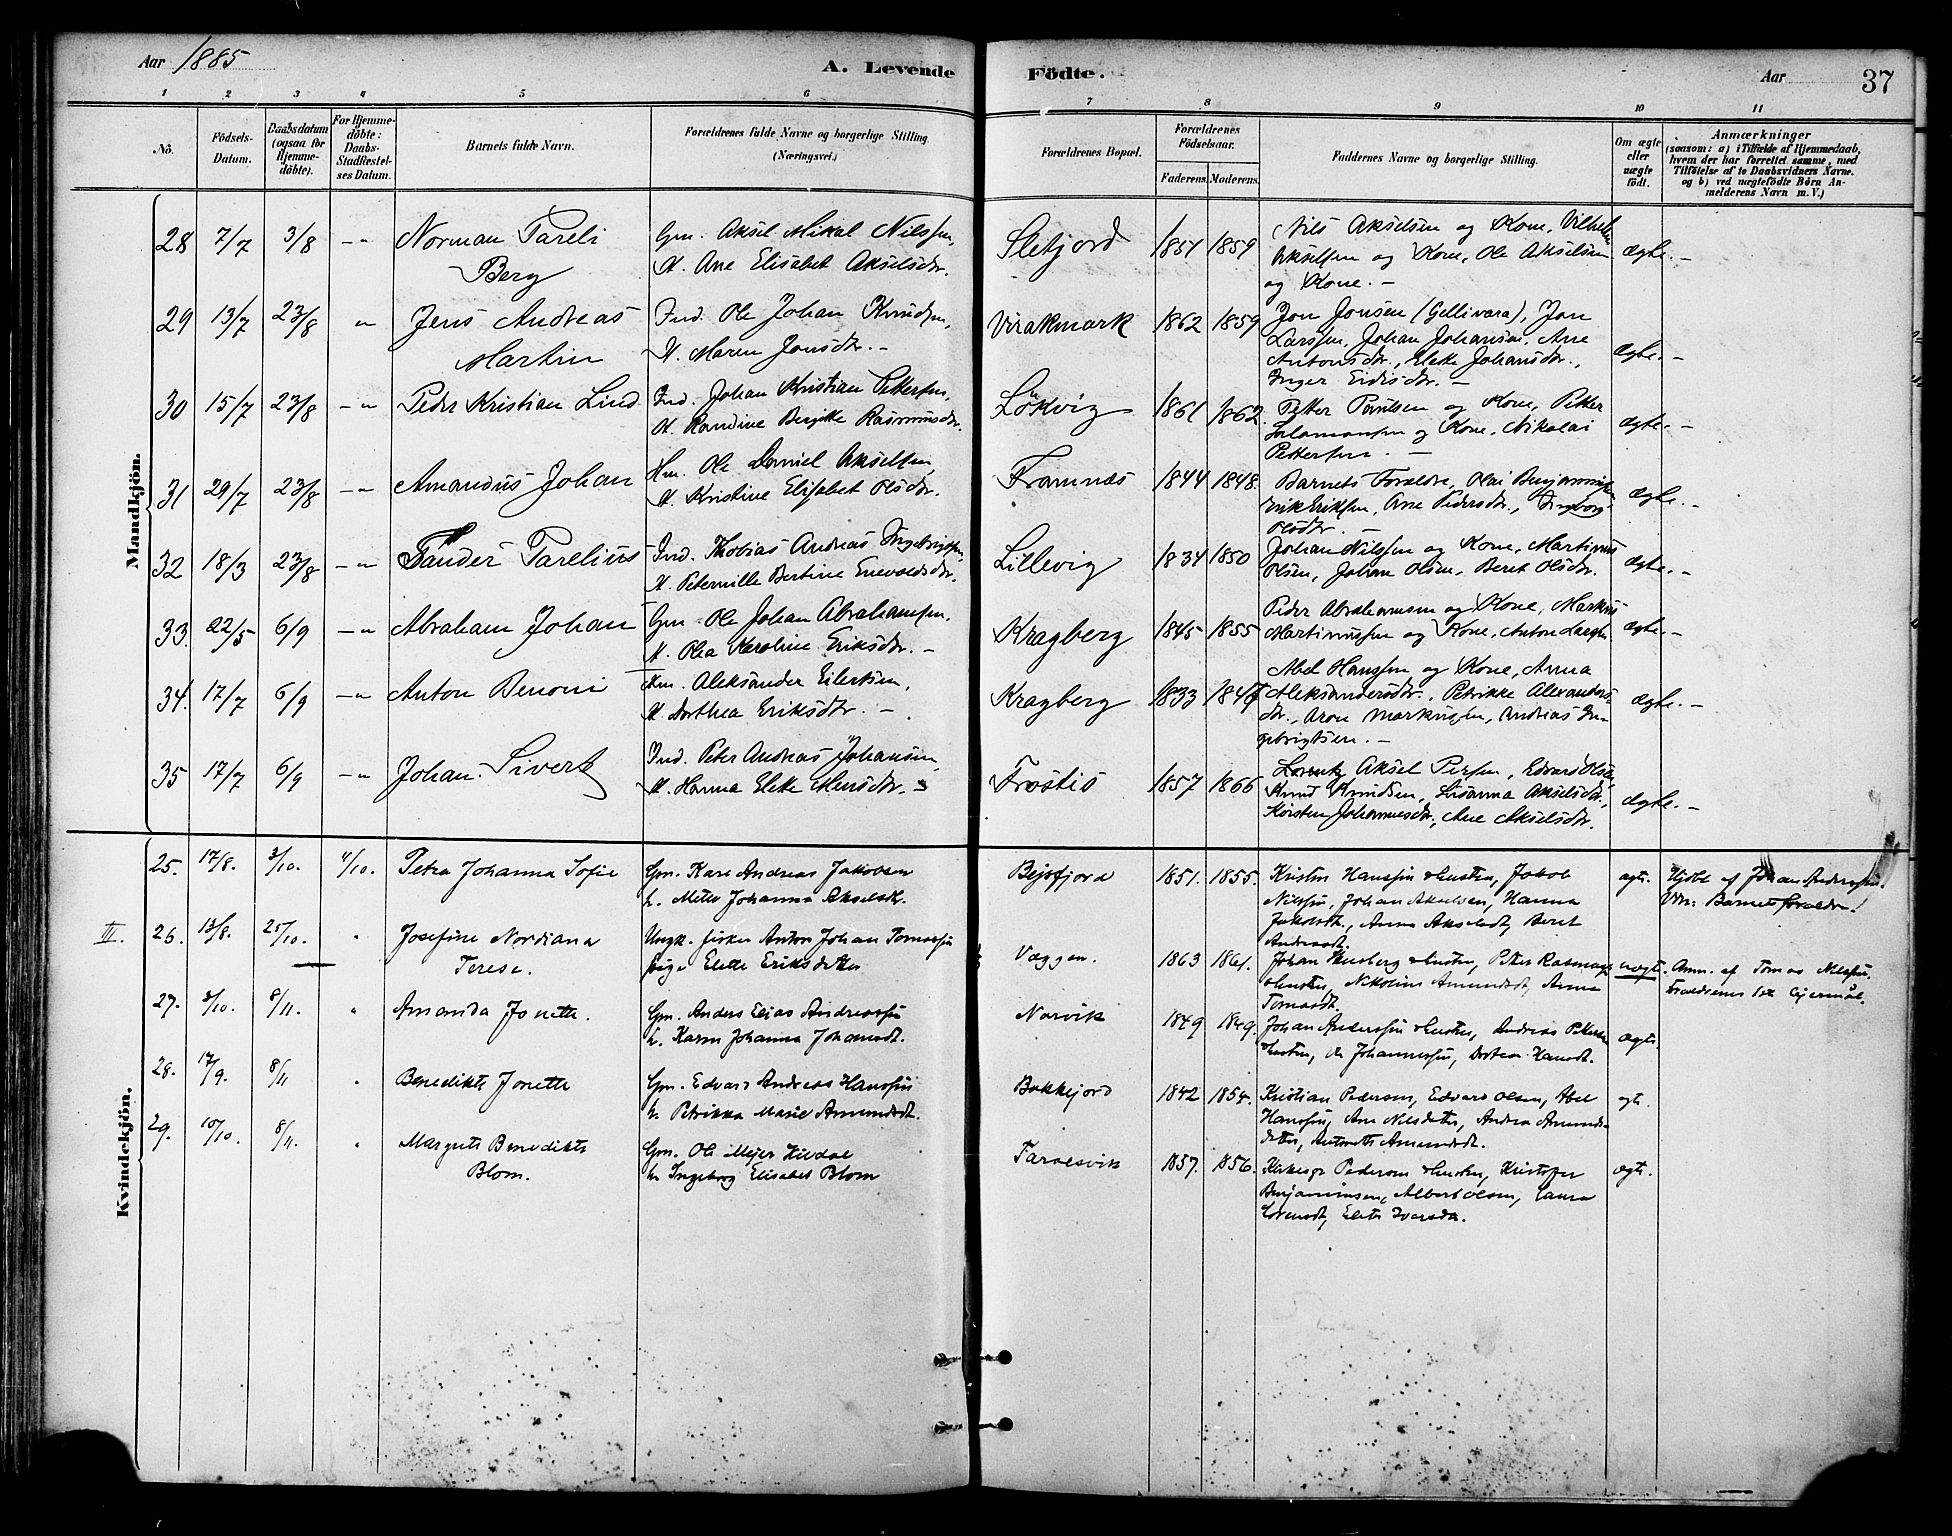 Aar 1885
A. Levende Födte.
Aar
37
1 2 3 4 5 6 7 8 9 10 11
No.
Födsels-Datum.
Daabsdatum (ogsaa for Hjemme-döbte).
For Hjemme-döbte: Daabs-Stadfæstel-ses Datum.
Barnets fulde Navn.
Forældrenes fulde Navne og borgerlige Stilling. (Næringsvei.)
Forældrenes Bopæl.
Forældrenes Födselsaar.
Faderens. Moderens.
Faddernes Navne og borgerlige Stilling.
Om ægte eller uægte födt.
Anmærkninger
(saasom: a) i Tilfælde af Hjemmedaab,
hvem der har forrettet samme, med
Tilföielse af to Daabsvidners Navne.
og b) ved uægtefödte Börn An-
melderens Navn m. V.)
Mandkjön.
28 7/7 3/8 -"- Norman Pareli Berg
Gm. Aksel Mikal Nilssen,
H. Ane Elisabet Akselsdtr.
Sletjord 1851 1859
Nils Akselsen og Kone, Vilhelm
Akselsen og Kone, Ole Akselsen
og Kone. -
ægte. -
29 13/7 23/8 " Jens Andreas Martin
Ind. Ole Johan Knudsen,
H. Maren Jonsdtr. -
Virakmark 1862 1859
Jon Jonsen (Gellivara), Jon
Larssen, Johan Johansen, Ane
Antonsdtr., Elete Johansdtr.,
Inger Eidisdtr. -
ægte. -
30 15/7 23/8 -"- Peder Kristian Lind
Ind. Johan Kristian Pettersen,
H. Randine Bergitte Rasmusdtr.
Lökvig 1861 1862
Petter Paulsen og Kone, Petter
Salamonsen og Kone, Nikolai
Pettersen. -
ægte. -
31 29/7 23/8 -"- Amandus Johan
Hm. Ole Daniel Akselsen,
H. Kristine Elisabet Olsdtr.
Framnæs 1844 1848.
Barnets Forældre, Olai Benjaminsen
Erik Eriksen, Ane Pedersdtr., Ingeborg
Olsdtr. -
ægte. -
32 18/3 23/8 -"- Sander Parelius
Ind. Thobias Andreas Ingebrigtsen,
H. Peternille Bertine Enevoldsdtr.
Lillevig 1834 1850
Johan Nilssen og Kone, Martinus
Olsen, Johan Olsen, Beret Olsdtr.
ægte. -
33. 22/5 6/9 -"- Abraham Johan
Gm. Ole Johan Abrahamsen,
H. Olea Karoline Eriksdtr. -
Kragberg 1845 1855
Peder Abrahamsen og Kone, Markus
Martinussen og Kone, Anton
ægte. -
34. 17/7 6/9 -"- Anton Benoni
Aleksander Eilertsen,
H. Dorthea Eriksdtr. -
Kragberg 1833 1847
Abel Hanssen og Kone, Anna
Aleksandersdtr., Petrikke Alexanders-
dtr., Aron Markussen, Andreas In-
gebrigtsen. -
ægte. -
35 17/7 6/9 -"- Johan Sivert
Ind. Peter Andreas Johansen,
H. Hanna Elete Mensdtr.
Frostis 1857 1866
Aksel Persen, Edvard Olsen,
Knud Knudsen, Susanna Akselsdtr.,
Kirsten Johannesdtr., Ane Akselsdtr.
ægte. -
III.
Kvindekjön.
25. 17/8. 3/10. 4/10. Petra Johanna Sofie
Gm. Kare Andreas Jakobsen
h. Mette Johanna Akselsdt.
Bejsfjord 1851. 1855.
Kristen Hanssen & hustru, Jakob
Nilssen, Johan Akselsen, Hanna
Jakobsdt., Anna Akselsdt, Beret
Andreasdt.
ægt. Hjdbt. af Johan Anderssen.
Vdn: Barnets forældre!
26. 13/8. 25/10. " Josefine Nordiana Terese.
Ungk. fisker Anton Johan Tomassen
Pige Elete Eriksdatter
Væggen. 1863 1861.
Johan Husberg & hustru, Peter Rasmussen
& hustru, Nikoline Amundsdt, Anna
Tomasdt.
uægt. Anm. af Tomas Nilssen.
Forældrenes 1ste lejermål.
27. 2/10. 8/11. " Amanda Jonette.
Gm. Anders Elias Andreassen
h. Karen Johanna Johansdt.
Narvik 1849 1849.
Johan Anderssen & hustru, Andreas Petersen
& hustru, Ole Johannessen, Dortea Hansdt.
ægt.
28. 17/9. 8/11 " Benedikte Jonette
Gm. Edvard Andreas Hanssen
h. Petrikka Marie Amundsdt.
Bokkejord 1842 1854.
Kristian Pedersen, Edvard Olsen, Abel
Hanssen, Ane Nilsdatter, Andrea Amunds-
datter, Antonette Amundsdt.
ægt.
29. 10/10. 8/11. " Margrete Benedikte Blom.
Gm. Ole Mejer Hivdal
h. Ingeborg Elisabet Blom
Taraldsvik 1857. 1856.
Pedersen & hustru, Kristoffer
Benjaminsen, Albert Olsen, Laura
Lorensdt, Elete Iversda.
ægt.